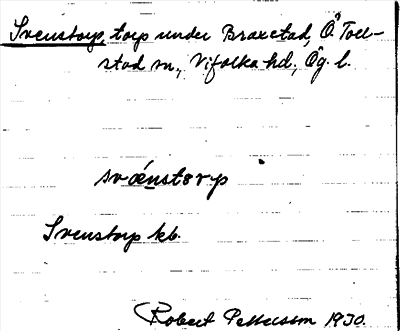 Svenstorp, torp under Braxstad, Ö. Toll-
stad sn., Vifolka hd., Ög. l.
svǽnstørp
Svenstorp kb.
Robert Pettersson 1930.